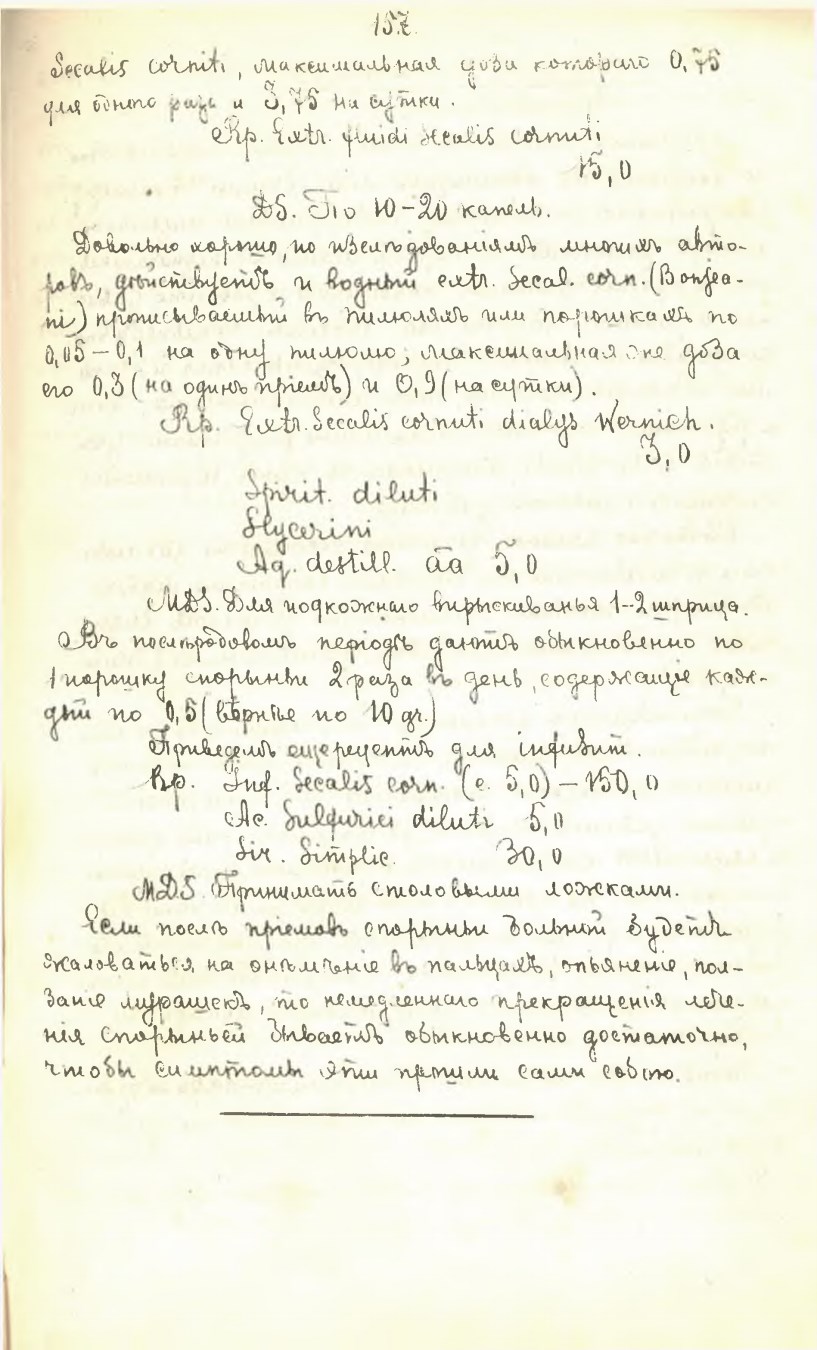 157.
Secalis corniti, максимальная доза котораго 0,75
для одного раза и 3,75 на сутки.
Rp. Extr. fluidi secalis cornuti
15,0
DS. По 10-20 капель.
Довольно хорошо, по изслѣдованіямъ многихъ авто-
ровъ, дѣйствуетъ и водный extr. Secal. corn. (Bonjea-
ni) прописываемый въ пилюляхъ или порошкахъ по
0,05-0,1 на одну пилюлю; максимальная же доза
его 0,3 (на одинъ пріемъ) и 0,9 (на сутки).
Rp. Extr. Secalis cornuti dialys Wernich.
3,0
Spirit. diluti
Glycerini
Aq. destill. āā 5,0
MDS. Для подкожнаго впрыскиванья 1-2 шприца.
Въ послѣродовомъ періодѣ даютъ обыкновенно по
1 порошку спорыньи 2 раза въ день, содержащіе каж-
дый по 0,5 (вѣрнѣе по 10 gr.)
Приведемъ еще рецептъ для infusum.
Rp. Inf. Secalis corn. (e. 5,0) - 150,0
Ac. Sulfurici diluti 5,0
Sir. Simplic. 30,0
MDS Принимать столовыми ложками.
Если послѣ пріемовъ спорыньи больной будетъ
жаловаться на онѣмѣніе въ пальцахъ, опьяненіе, пол-
заніе мурашекъ, то немедленнаго прекращенія лѣче-
нія спорыньей бываетъ обыкновенно достаточно,
чтобы симптомы эти прошли сами собою.